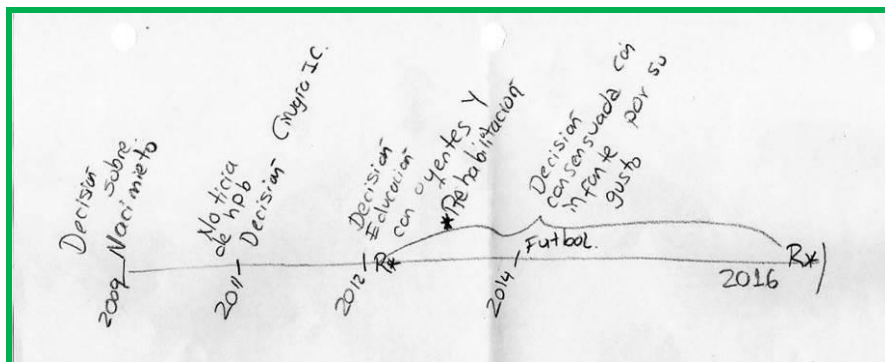 Decisión
sobre
Nacimieto
2009
Noticia
de hpb
Decisión Cirugia IC.
2011
Decisión
Educación
con oyentes y
*Rehabilitación
2012
R*
Decisión
consensuada con
infante por su
gusto
Futbol.
2014
2016
R*)